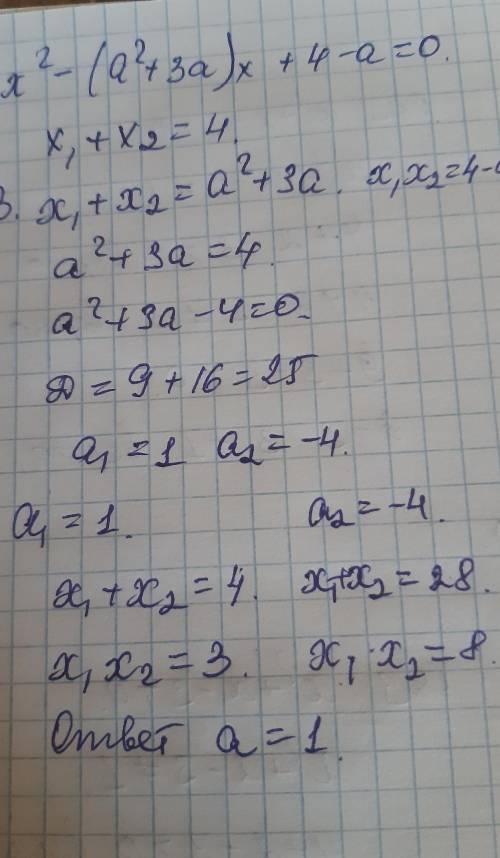 x² - (a² + 3a)x + 4 - a = 0.
x₁ + x₂ = 4.
3. x₁ + x₂ = a² + 3a. x₁x₂ = 4 -
a² + 3a = 4.
a² + 3a - 4 = 0.
D = 9 + 16 = 25
a₁ = 1 a₂ = -4.
a₁ = 1. a₂ = -4.
x₁ + x₂ = 4. x₁+x₂ = 28.
x₁ x₂ = 3. x₁ · x₂ = 8.
Ответ a = 1.